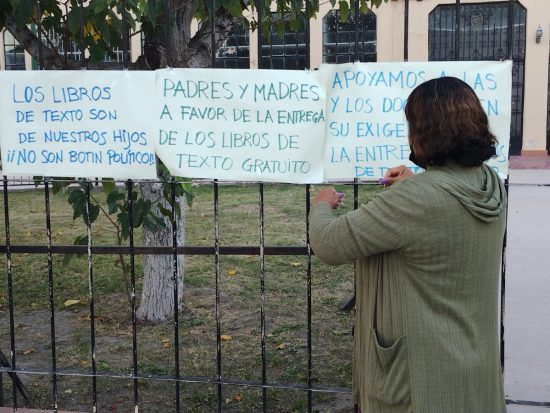 LOS LIBROS
DE TEXTO SON
DE NUESTROS HIJOS
¡¡NO SON BOTIN POLÍTICO!!
PADRES Y MADRES
A FAVOR DE LA ENTREGA
DE LOS LIBROS DE
TEXTO GRATUITO
APOYAMOS A LAS
Y LOS EN
SU
LA
DE